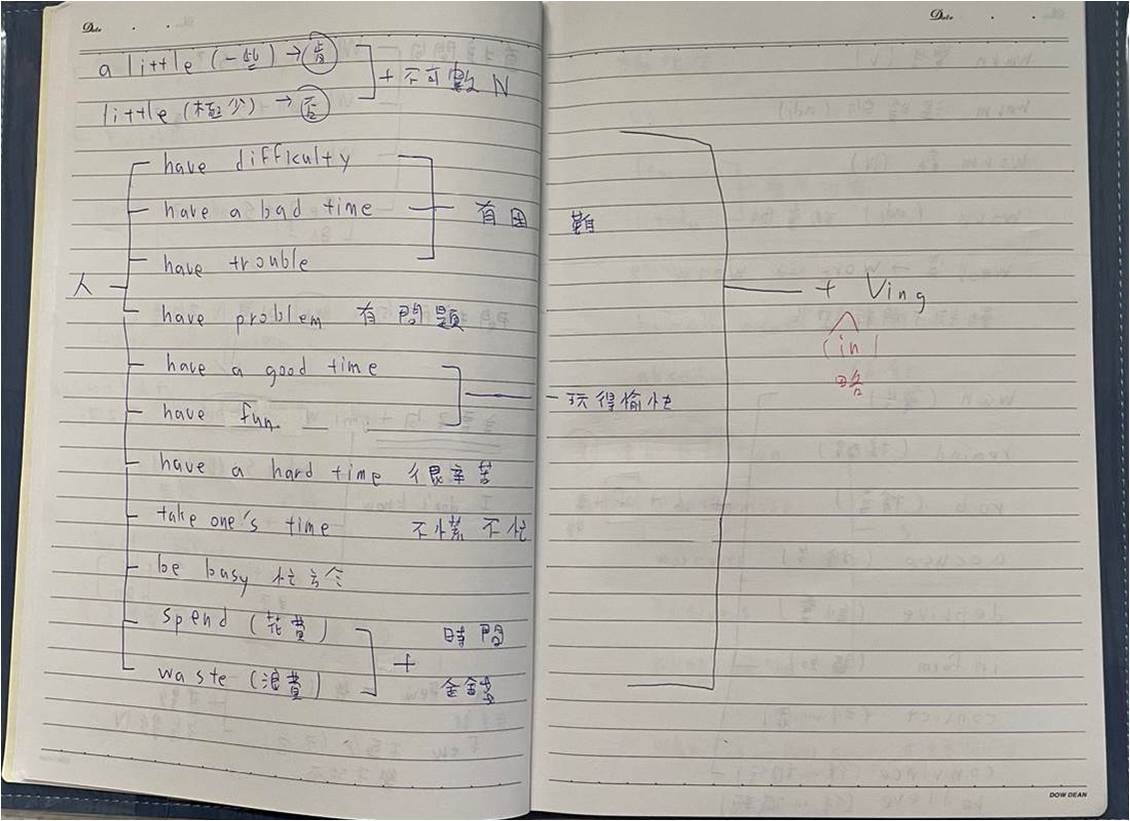 Date
Date
a little (一些) → 肯
+ 不可數 N
little (極少) → 否
have difficulty
have a bad time 有困難
have trouble
人
+ Ving
have problem 有問題
(in)
略
have a good time
玩得愉快
have fun
have a hard time 很辛苦
take one's time 不慌不忙
be busy 忙於
spend (花費) 時間
+
waste (浪費) 金錢
DOW DEAN